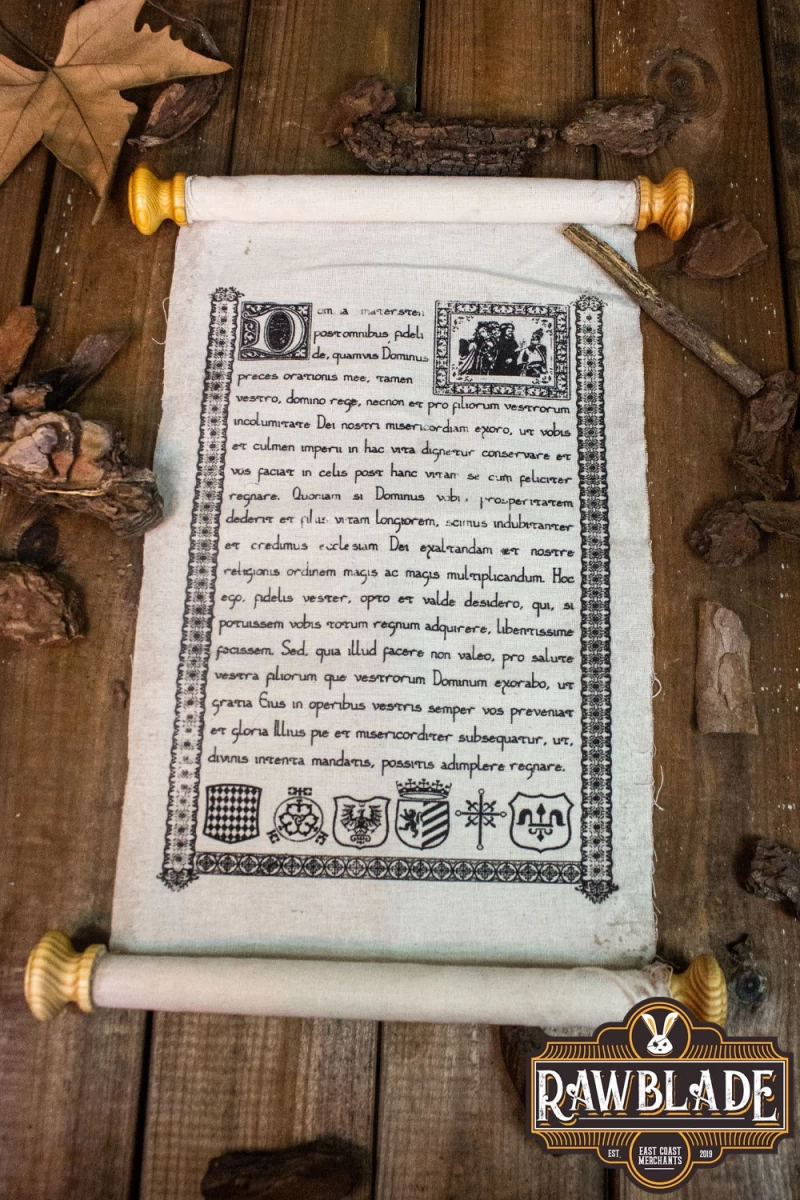 D
post omnibus fideli
de, quamvis Dominus
preces orationis mee, tamen
vestro, domino rege, necnon et pro filiorum vestrorum
incolumitate Dei nostri misericordiam exoro, ut vobis
et culmen imperii in hac vita dignetur conservare et
vos faciat in celis post hanc vitam se cum feliciter
regnare. Quoniam si Dominus vobis prosperitatem
dederit et filiis vitam longiorem, scimus indubitanter
et credimus ecclesiam Dei exaltandam et nostre
religionis ordinem magis ac magis multiplicandum. Hoc
ego, fidelis vester, opto et valde desidero, qui, si
potuissem vobis totum regnum adquirere, libentissime
facissem. Sed, quia illud facere non valeo, pro salute
vestra filiorum que vestrorum Dominum exorabo, ut
gratia Eius in operibus vestris semper vos preveniat
et gloria Illius pie et misericorditer subsequatur, ut,
divinis intenta mandatis, possitis adimplere regnare.
RAWBLADE
EST. EAST COAST MERCHANTS 2019